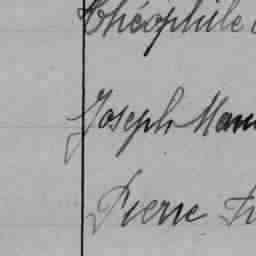 Théophile
Joseph
Pierre